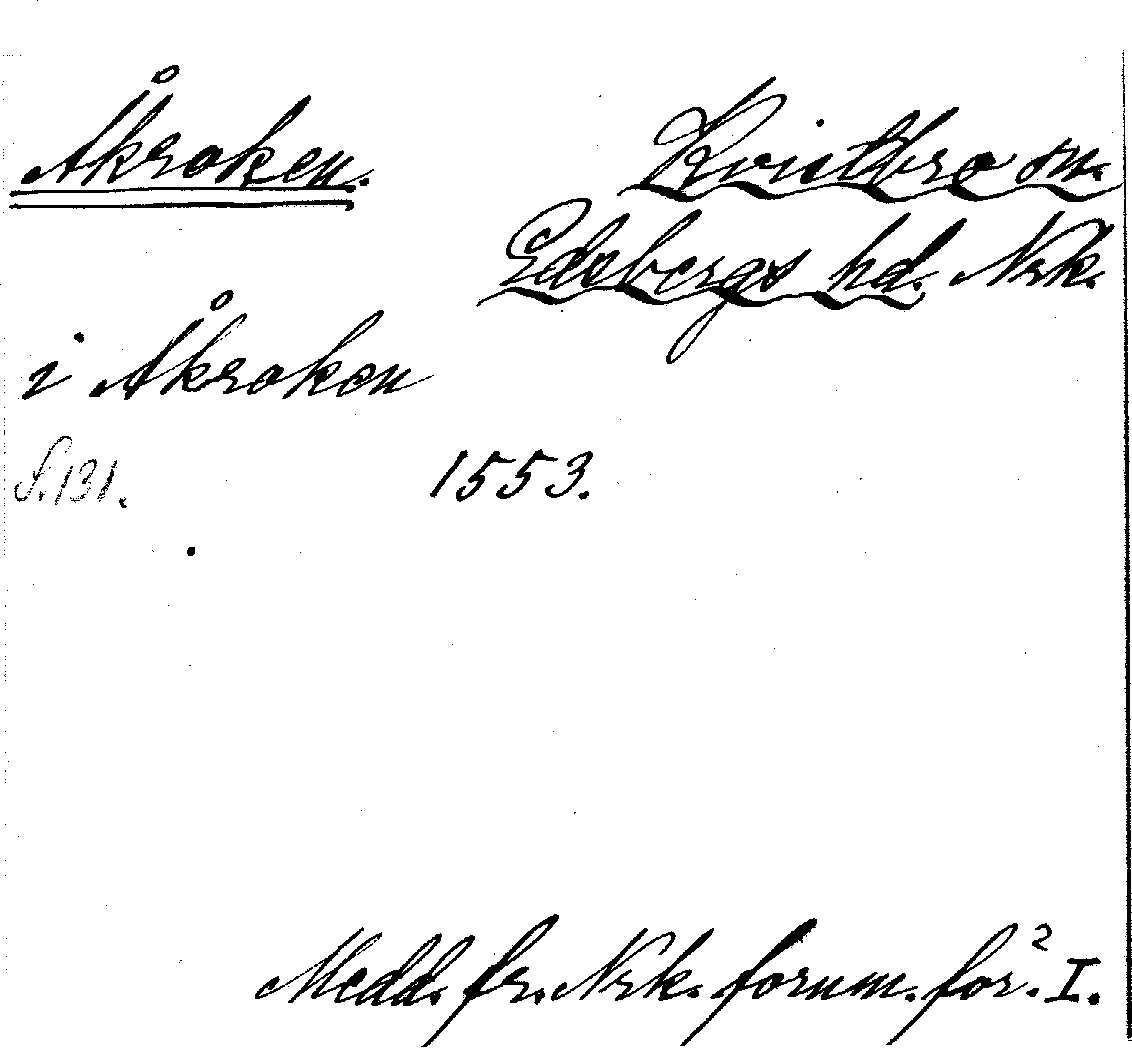 Åkroken.
Kvistbro sn.
Edsbergs hd. Nrk.
i Åkroken
S. 131.
1553.
Medd. fr. Nrk. fornm. för². I.